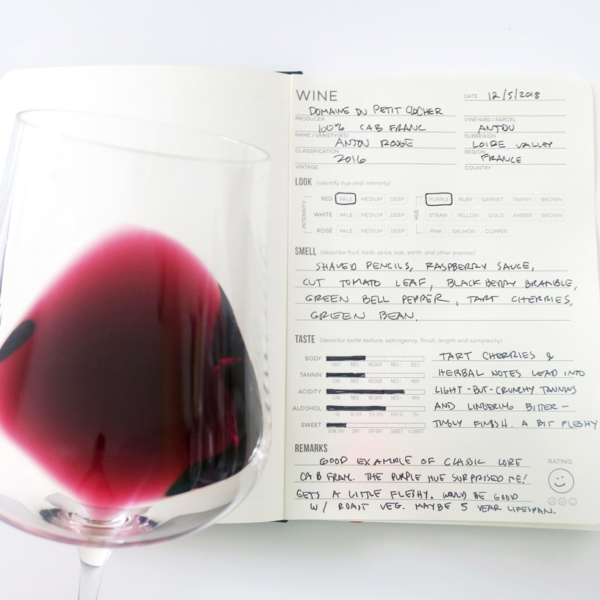 WINE
DATE 12/5/2018
DOMAINE DU PETIT CLOCHER
PRODUCER VINEYARD / PARCEL
100% CAB FRANC ANJOU
NAME / VARIETY(IES) SUBREGION
ANJOU ROUGE LOIRE VALLEY
CLASSIFICATION REGION
2016 FRANCE
VINTAGE COUNTRY
LOOK (identify hue and intensity)
INTENSITY HUE
RED PALE MEDIUM DEEP PURPLE RUBY GARNET TAWNY BROWN
WHITE PALE MEDIUM DEEP STRAW YELLOW GOLD AMBER BROWN
ROSÉ PALE MEDIUM DEEP PINK SALMON COPPER
SMELL (describe fruit, herb, spice, oak, earth, and other aromas)
SHAVED PENCILS, RASPBERRY SAUCE,
CUT TOMATO LEAF, BLACKBERRY BRAMBLE,
GREEN BELL PEPPER, TART CHERRIES,
GREEN BEAN.
TASTE (describe taste texture, astringency, finish, length and complexity)
BODY TART CHERRIES &
TANNIN HERBAL NOTES LEAD INTO
ACIDITY LIGHT-BUT-CRUNCHY TANNINS
ALCOHOL AND LINGERING BITTER-
SWEET TINGLY FINISH. A BIT FLESHY
REMARKS
RATING
GOOD EXAMPLE OF CLASSIC LOIRE
CAB FRANC. THE PURPLE HUE SURPRISED ME!
GETS A LITTLE FLESHY. WOULD BE GOOD
W/ ROAST VEG. MAYBE 5 YEAR LIFESPAN.